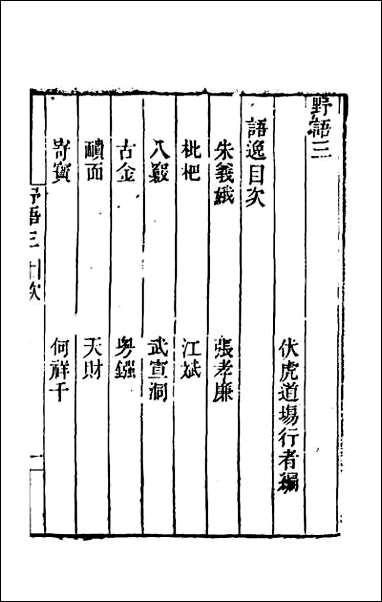 野語三
伏虎道場行者編
語逸目次
朱義娥 張孝廉
枇杷 江斌
八毅 武宣洞
古金
靧面 天財
寄寶 何祥千
野語三 目次 一